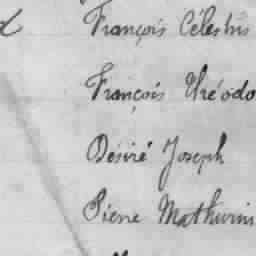 François Célestin
François Théodo
Désiré Joseph
Pierre Mathurin